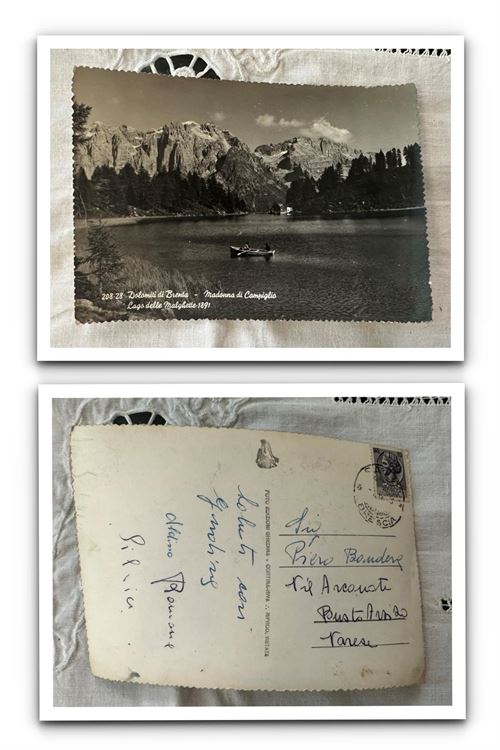 208-28 Dolomiti di Brenta - Madonna di Campiglio
Lago delle Malghette 1891
Saluti cari
Romana
Silvia
FOTO EDIZIONI GHEDINA - CORTINA
Sig
Piero Bandera
Arconati
Busto Arsizio
Varese
BRESCIA